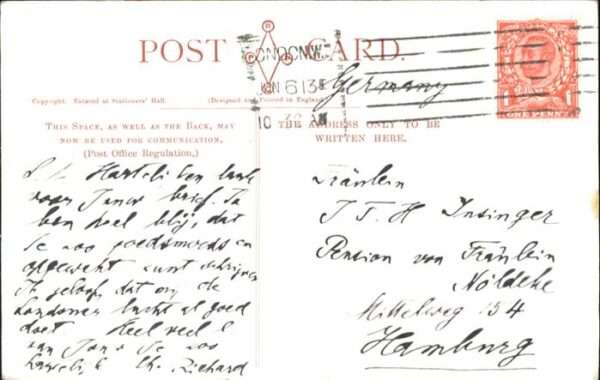 POST CARD.
LONDON.W.
6 13
10
Germany
ONE PENNY
Copyright. Entered at Stationers' Hall.
(Designed and Printed in England)
THIS SPACE, AS WELL AS THE BACK, MAY
NOW BE USED FOR COMMUNICATION,
(Post Office Regulation.)
THE ADDRESS ONLY TO BE
WRITTEN HERE.
Hartelijken dank
voor Jouw brief. Ik
ben heel blij, dat
Je zoo goedsmoeds en
opgewekt kunt schrijven
Ik geloof, dat mij de
Londonse lucht al goed
doet Heel veel
van Jouw Je zoo
Richard
Fräulein
J T H Insinger
Pension von Fräulein
Nöldeke
Mittelweg 154
Hamburg